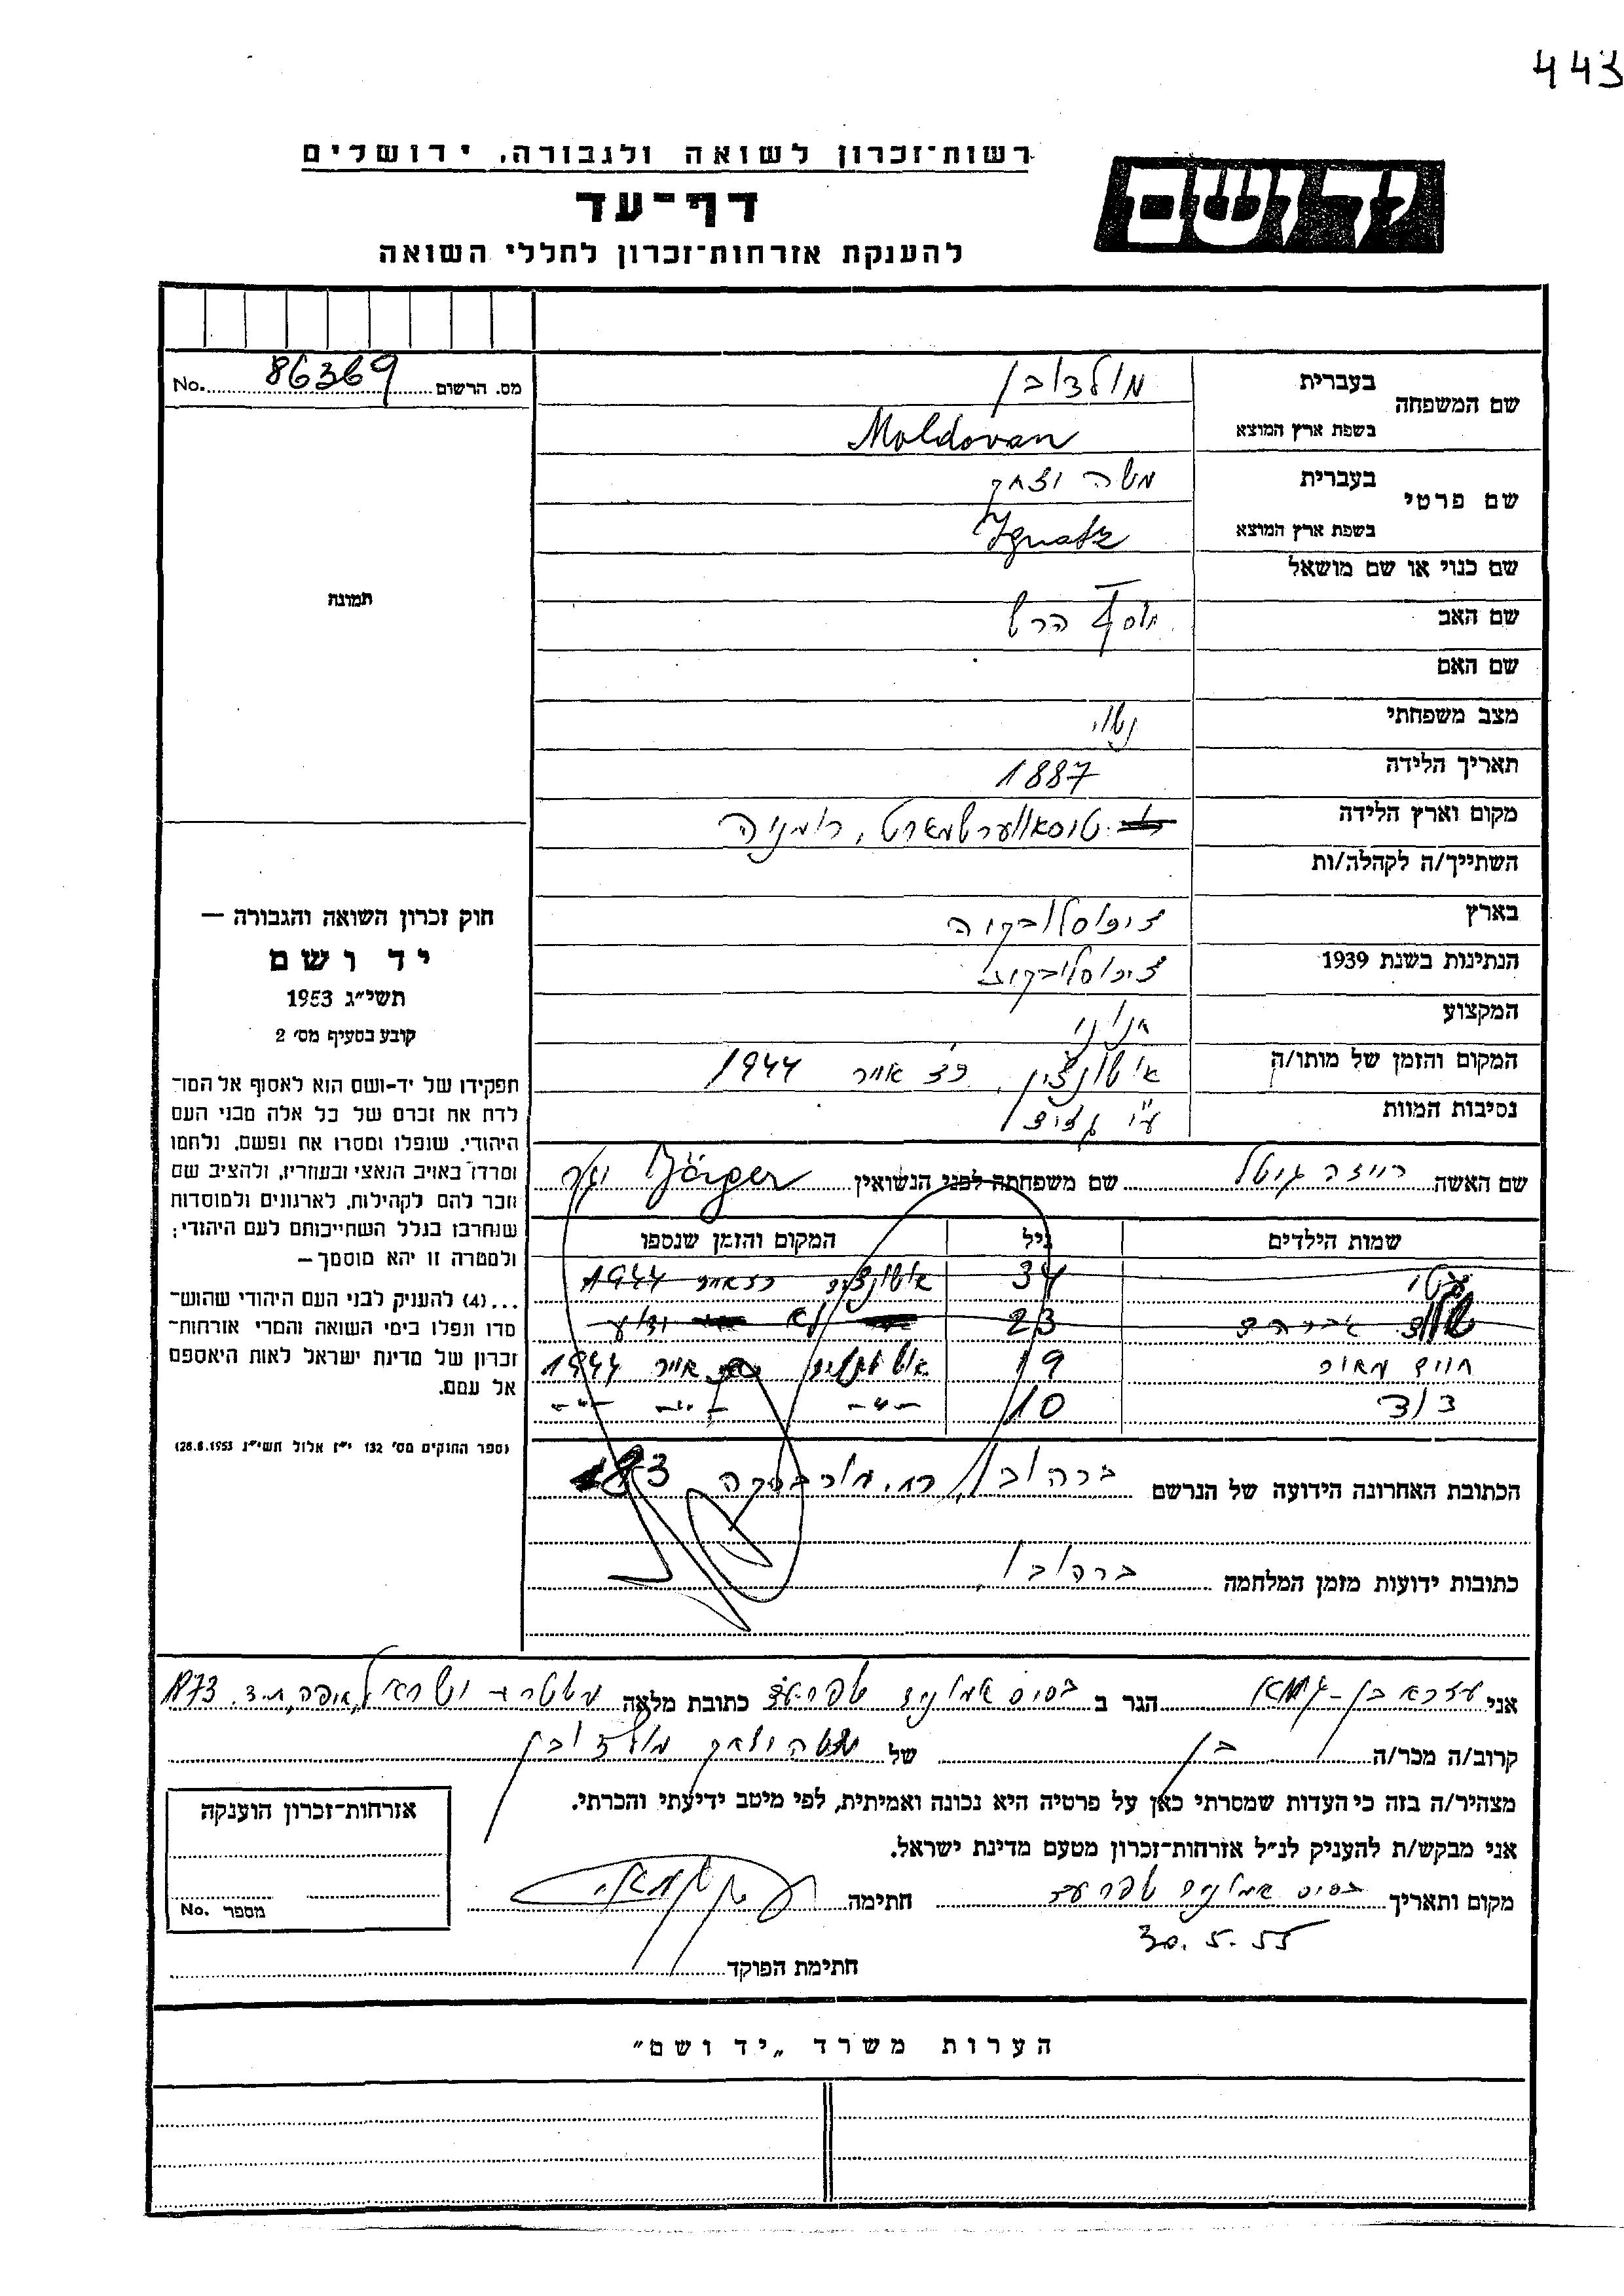 443
רשות־זכרון לשואה ולגבורה, ירושלים
יד ושם
דף־עד
להענקת אזרחות־זכרון לחללי השואה
מס. הרשום 86369 No.
שם המשפחה בעברית מולדובן
בשפת ארץ המוצא Moldovan
שם פרטי בעברית משה יצחק
בשפת ארץ המוצא Ignatz
שם כנוי או שם מושאל
שם האב יוסף הרש
שם האם
מצב משפחתי נשוי
תאריך הלידה 1887
מקום וארץ הלידה רומניה
השתייך/ה לקהלה/ות
בארץ צ'כוסלובקיה
הנתינות בשנת 1939 צ'כוסלובקית
המקצוע חנוני
המקום והזמן של מותו/ה אושוויץ, אייר 1944
נסיבות המוות ע"י גזים
תמונה
חוק זכרון השואה והגבורה —
יד ושם
תשי״ג 1953
קובע בסעיף מס׳ 2
תפקידו של יד-ושם הוא לאסוף אל המו־
לדת את זכרם של כל אלה מבני העם
היהודי, שנפלו ומסרו את נפשם, נלחמו
ומרדו באויב הנאצי ובעוזריו, ולהציב שם
וזכר להם לקהילות, לארגונים ולמוסדות
שנחרבו בגלל השתייכותם לעם היהודי;
ולמטרה זו יהא מוסמך—
...(4) להעניק לבני העם היהודי שהוש־
מדו ונפלו בימי השואה והמרי אזרחות־
זכרון של מדינת ישראל לאות היאספם
אל עמם.
(ספר החוקים מס׳ 132 י״ז אלול תשי״ג 28.8.1953)
שם האשה רייזה גיטל שם משפחתה לפני הנשואין Jörger
שמות הילדים גיל המקום והזמן שנספו
34 1944
אברהם 23 לא ידוע
חיים מאיר 19 אייר 1944
דוד 10 -"- -"- -"-
הכתובת האחרונה הידועה של הנרשם 183
כתובות ידועות מזמן המלחמה
אני עזרא בן-גמא הגר ב כתובת מלאה משטרת ישראל, חיפה, ת.ד. 1873
קרוב/ה מכר/ה בן של משה יצחק מולדובן
מצהיר/ה בזה כי העדות שמסרתי כאן על פרטיה היא נכונה ואמיתית, לפי מיטב ידיעתי והכרתי.
אני מבקש/ת להעניק לנ״ל אזרחות־זכרון מטעם מדינת ישראל.
מקום ותאריך חתימה
30.5.55
חתימת הפוקד
אזרחות־זכרון הוענקה
מספר No.
הערות משרד „יד ושם״